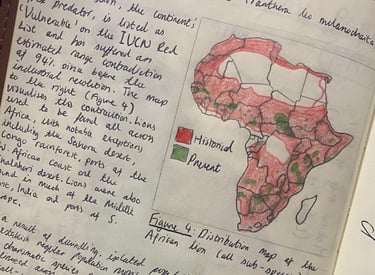 (Panthera leo melanochaita
predator, is listed as
'Vulnerable' on the IUCN Red
List and has suffered an
estimated range contradiction
of 94% since before the
industrial revolution. The map
to the right (Figure 4)
visualising this contraction. Lions
used to be found all across
Africa, with notable exceptions
including the Sahara desert,
Congo rainforest, parts of the
W. African coast and the
Kalahari desert. Lions were also
found in much of the Middle
East, India and parts of S.
Europe.
a result of dwindling, isolated
establish regular population
charismatic species
Historical
Present
Figure 4: Distribution map of the
African lion (all sub-species)